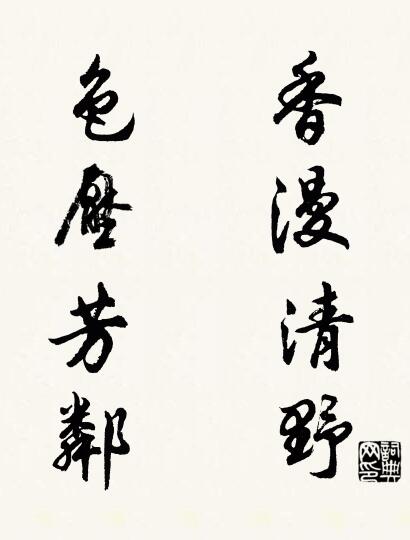 香漫清野
色壓芳鄰
詞典网印